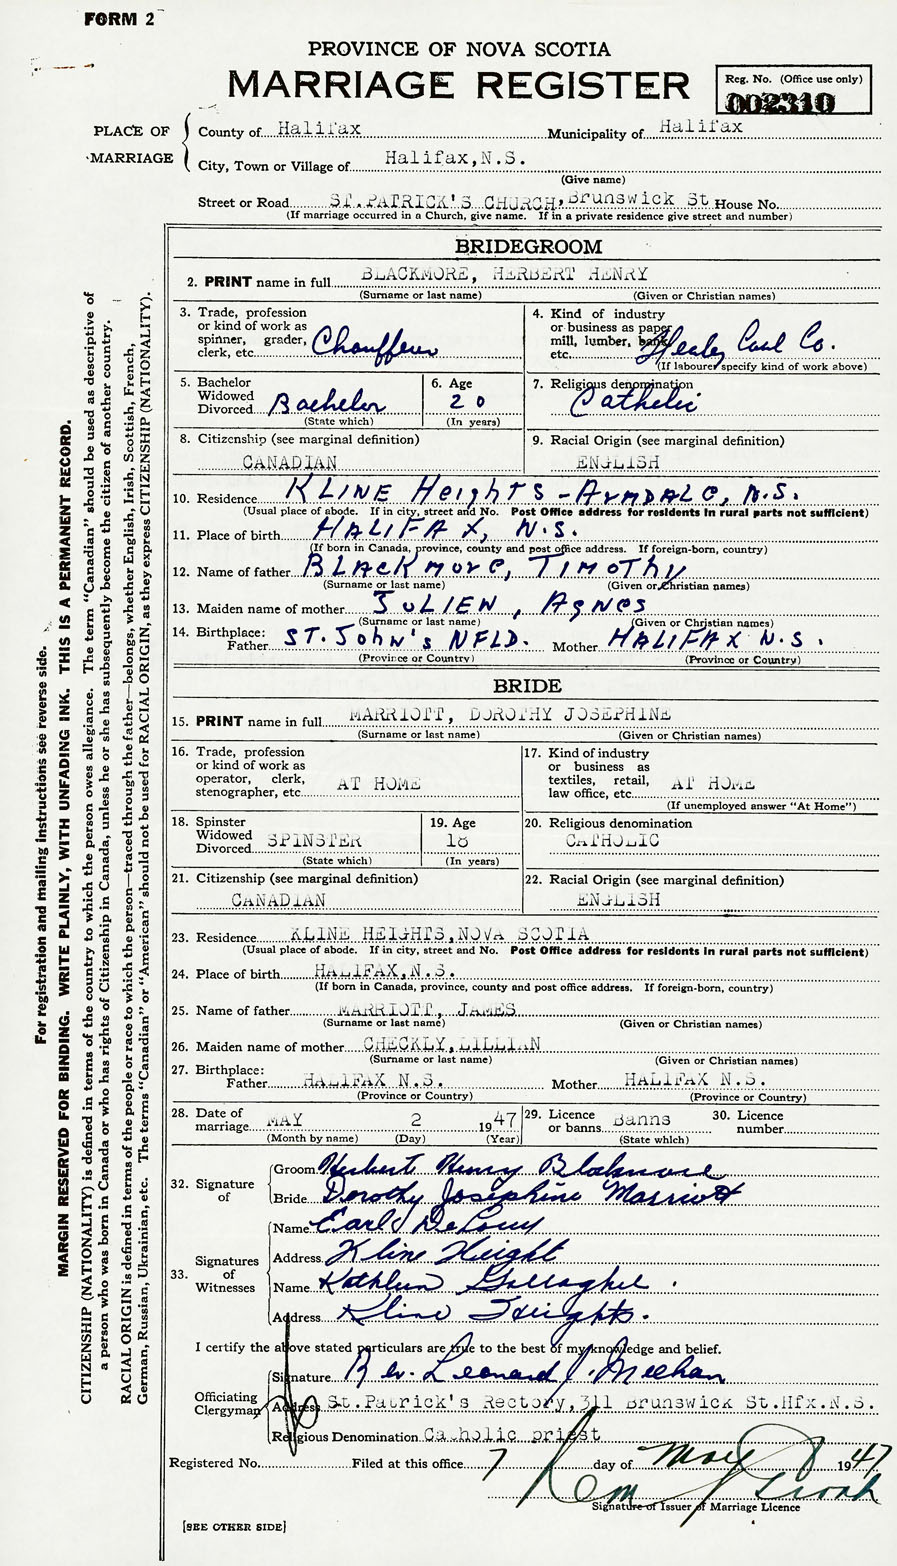 FORM 2
PROVINCE OF NOVA SCOTIA
MARRIAGE REGISTER
Reg. No. (Office use only)
002310
PLACE OF MARRIAGE
County of Halifax Municipality of Halifax
City, Town or Village of Halifax, N.S.
(Give name)
Street or Road ST. PATRICK'S CHURCH, Brunswick St House No.
(If marriage occurred in a Church, give name. If in a private residence give street and number)
BRIDEGROOM
2. PRINT name in full BLACKMORE, HERBERT HENRY
(Surname or last name) (Given or Christian names)
3. Trade, profession
or kind of work as
spinner, grader,
clerk, etc. Chauffeur
4. Kind of industry
or business as paper
mill, lumber, bank,
etc. Healey Coal Co.
(If labourer specify kind of work above)
5. Bachelor
Widowed
Divorced Bachelor
(State which)
6. Age
20
(In years)
7. Religious denomination
Catholic
8. Citizenship (see marginal definition)
CANADIAN
9. Racial Origin (see marginal definition)
ENGLISH
10. Residence KLINE HeigHTS - ArMDALe, N.S.
(Usual place of abode. If in city, street and No. Post Office address for residents in rural parts not sufficient)
11. Place of birth HALIFAX, N.S.
(If born in Canada, province, county and post office address. If foreign-born, country)
12. Name of father BLACKMore, TIMOTHy
(Surname or last name) (Given or Christian names)
13. Maiden name of mother JULIEN, AgNes
(Surname or last name) (Given or Christian names)
14. Birthplace:
Father ST. JOHN'S NFLD. Mother HALIFAX N.S.
(Province or Country) (Province or Country)
BRIDE
15. PRINT name in full MARRIOTT, DOROTHY JOSEPHINE
(Surname or last name) (Given or Christian names)
16. Trade, profession
or kind of work as
operator, clerk,
stenographer, etc. AT HOME
17. Kind of industry
or business as
textiles, retail,
law office, etc. AT HOME
(If unemployed answer "At Home")
18. Spinster
Widowed
Divorced SPINSTER
(State which)
19. Age
18
(In years)
20. Religious denomination
CATHOLIC
21. Citizenship (see marginal definition)
CANADIAN
22. Racial Origin (see marginal definition)
ENGLISH
23. Residence KLINE HEIGHTS, NOVA SCOTIA
(Usual place of abode. If in city, street and No. Post Office address for residents in rural parts not sufficient)
24. Place of birth HALIFAX, N.S.
(If born in Canada, province, county and post office address. If foreign-born, country)
25. Name of father MARRIOTT, JAMES
(Surname or last name) (Given or Christian names)
26. Maiden name of mother CHECKLY, LILLIAN
(Surname or last name) (Given or Christian names)
27. Birthplace:
Father HALIFAX N.S. Mother HALIFAX N.S.
(Province or Country) (Province or Country)
28. Date of
marriage MAY 2 1947
(Month by name) (Day) (Year)
29. Licence
or banns Banns
(State which)
30. Licence
number
32. Signature of
Groom Herbert Henry Blakmore
Bride Dorothy Josephine Marriott
33. Signatures of Witnesses
Name Earl
Address Kline Height
Name Kathleen Gallagher.
Address Kline Heights.
I certify the above stated particulars are true to the best of my knowledge and belief.
Officiating Clergyman
Signature Rev. Leonard J. Meehan
Address St. Patrick's Rectory, 311 Brunswick St. Hfx. N.S.
Religious Denomination Catholic priest
Registered No. Filed at this office 7 day of May 1947
Signature of Issuer of Marriage Licence
[SEE OTHER SIDE]
For registration and mailing instructions see reverse side.
MARGIN RESERVED FOR BINDING. WRITE PLAINLY, WITH UNFADING INK. THIS IS A PERMANENT RECORD.
CITIZENSHIP (NATIONALITY) is defined in terms of the country to which the person owes allegiance. The term "Canadian" should be used as descriptive of
a person who was born in Canada or who has rights of Citizenship in Canada, unless he or she has subsequently become the citizen of another country.
RACIAL ORIGIN is defined in terms of the people or race to which the person—traced through the father—belongs, whether English, Irish, Scottish, French,
German, Russian, Ukrainian, etc. The terms "Canadian" or "American" should not be used for RACIAL ORIGIN, as they express CITIZENSHIP (NATIONALITY).